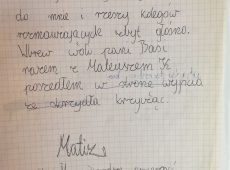 do mnie i rzeszy kolegów
rozmawiających zbyt głośno.
Wbrew woli pani Basi
razem z Mateuszem K
poszedłem w stronę wyjścia
ze skrzydła krzycząc.
Matiz